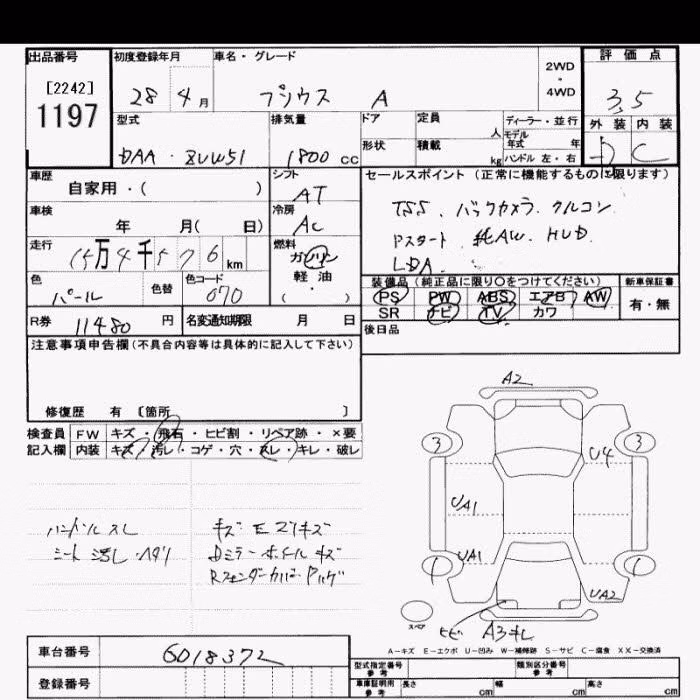 出品番号 初度登録年月 車名・グレード 2WD・4WD 評価点
[2242] 28年4月 プリウス A 3.5
1197
型式 排気量 ドア 定員 人 ディーラー・並行 外装 内装
DAA・ZVW51 1800cc 形状 積載 kg モデル年式 年 ハンドル 左・右 C
車歴 シフト セールスポイント (正常に機能するものに限ります)
自家用・( ) AT
車検 冷房 TSS.バックカメラ.クルコン
年 月( 日) AC Pスタート 純AW. HUD
走行 燃料 LDA.
15万4千576km ガソリン
色 色替 色コード 軽油
パール 070 ・( )
装備品 (純正品に限り○をつけてください) 新車保証書
PS PW ABS エアB AW 有・無
SR ナビ TV カワ
R券 11480円 名変通知期限 月 日 後日品
注意事項申告欄(不具合内容等は具体的に記入して下さい)
修復歴 有 [箇所 ]
検査員 FW キズ・飛石・ヒビ割・リペア跡・×要
記入欄 内装 キズ・汚レ・コゲ・穴・スレ・キレ・破レ
A2
3 3
U4
UA1
UA1
1 1
UA2
スペア ヒビ A3キレ
ハンドルスレ キズEコリキズ
シート汚レ・ Dミラーホイールキズ
Rフェンダーカバー
A-キズ E-エクボ U-凹み W-補修跡 S-サビ C-腐食 XX-交換済
車台番号 6018372 型式指定番号 参考 類別区分番号 参考
登録番号 車庫証明用 参考 長さ cm 幅 cm 高さ cm